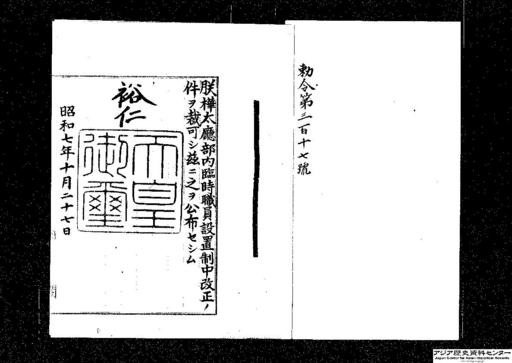 勅令第三百十七號
朕樺太廳部内臨時職員設置制中改正ノ
件ヲ裁可シ茲ニ之ヲ公布セシム
裕仁
天皇
御璽
昭和七年十月二十七日
アジア歴史資料センター
Japan Center for Asian Historical Records